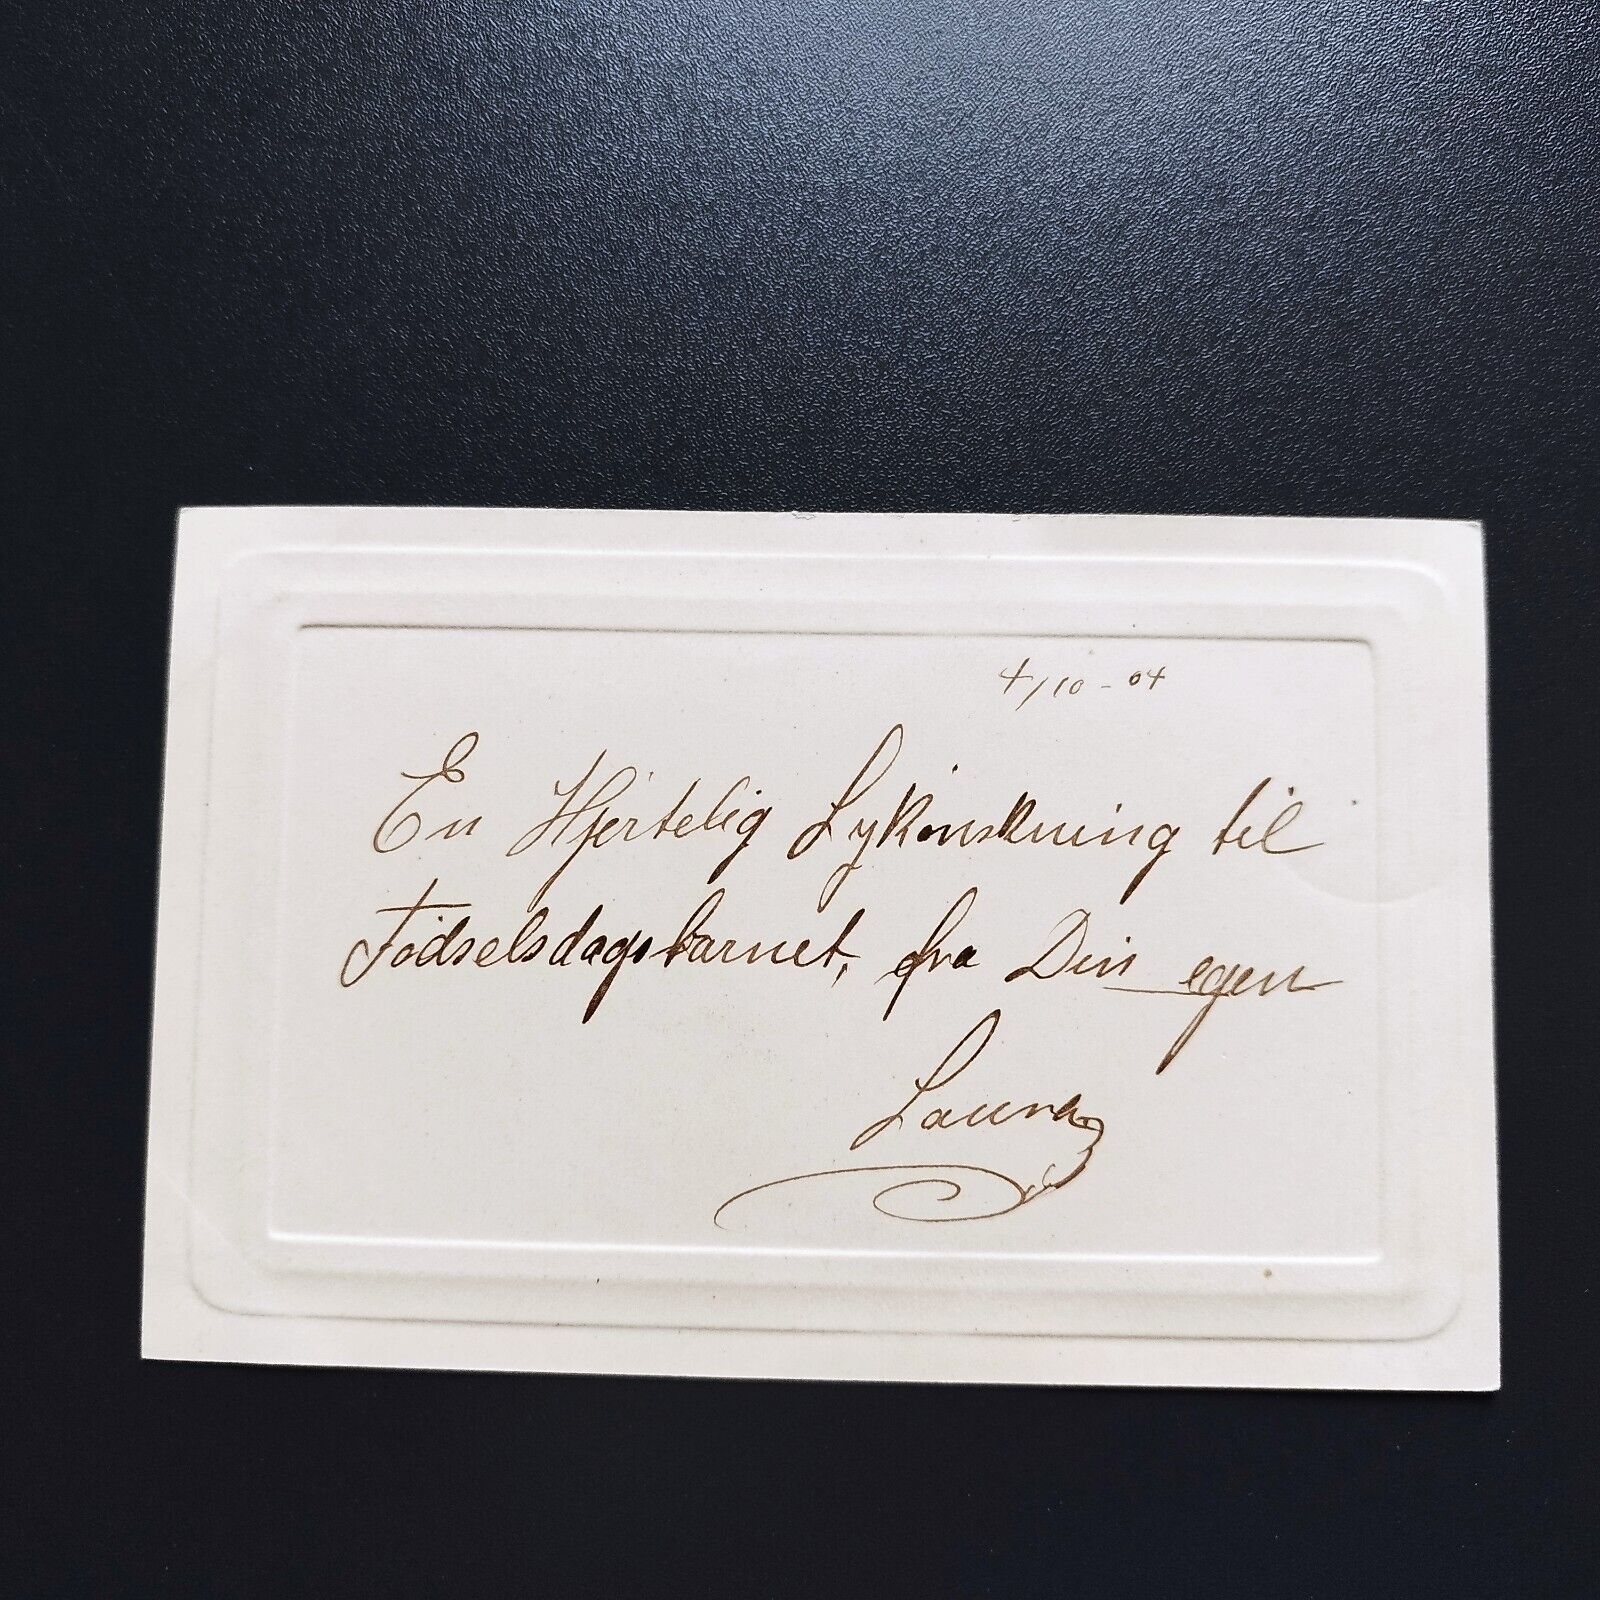 4/10-04
En Hjertelig Lykönskning til
Födselsdagsbarnet, fra Din egen
Laura